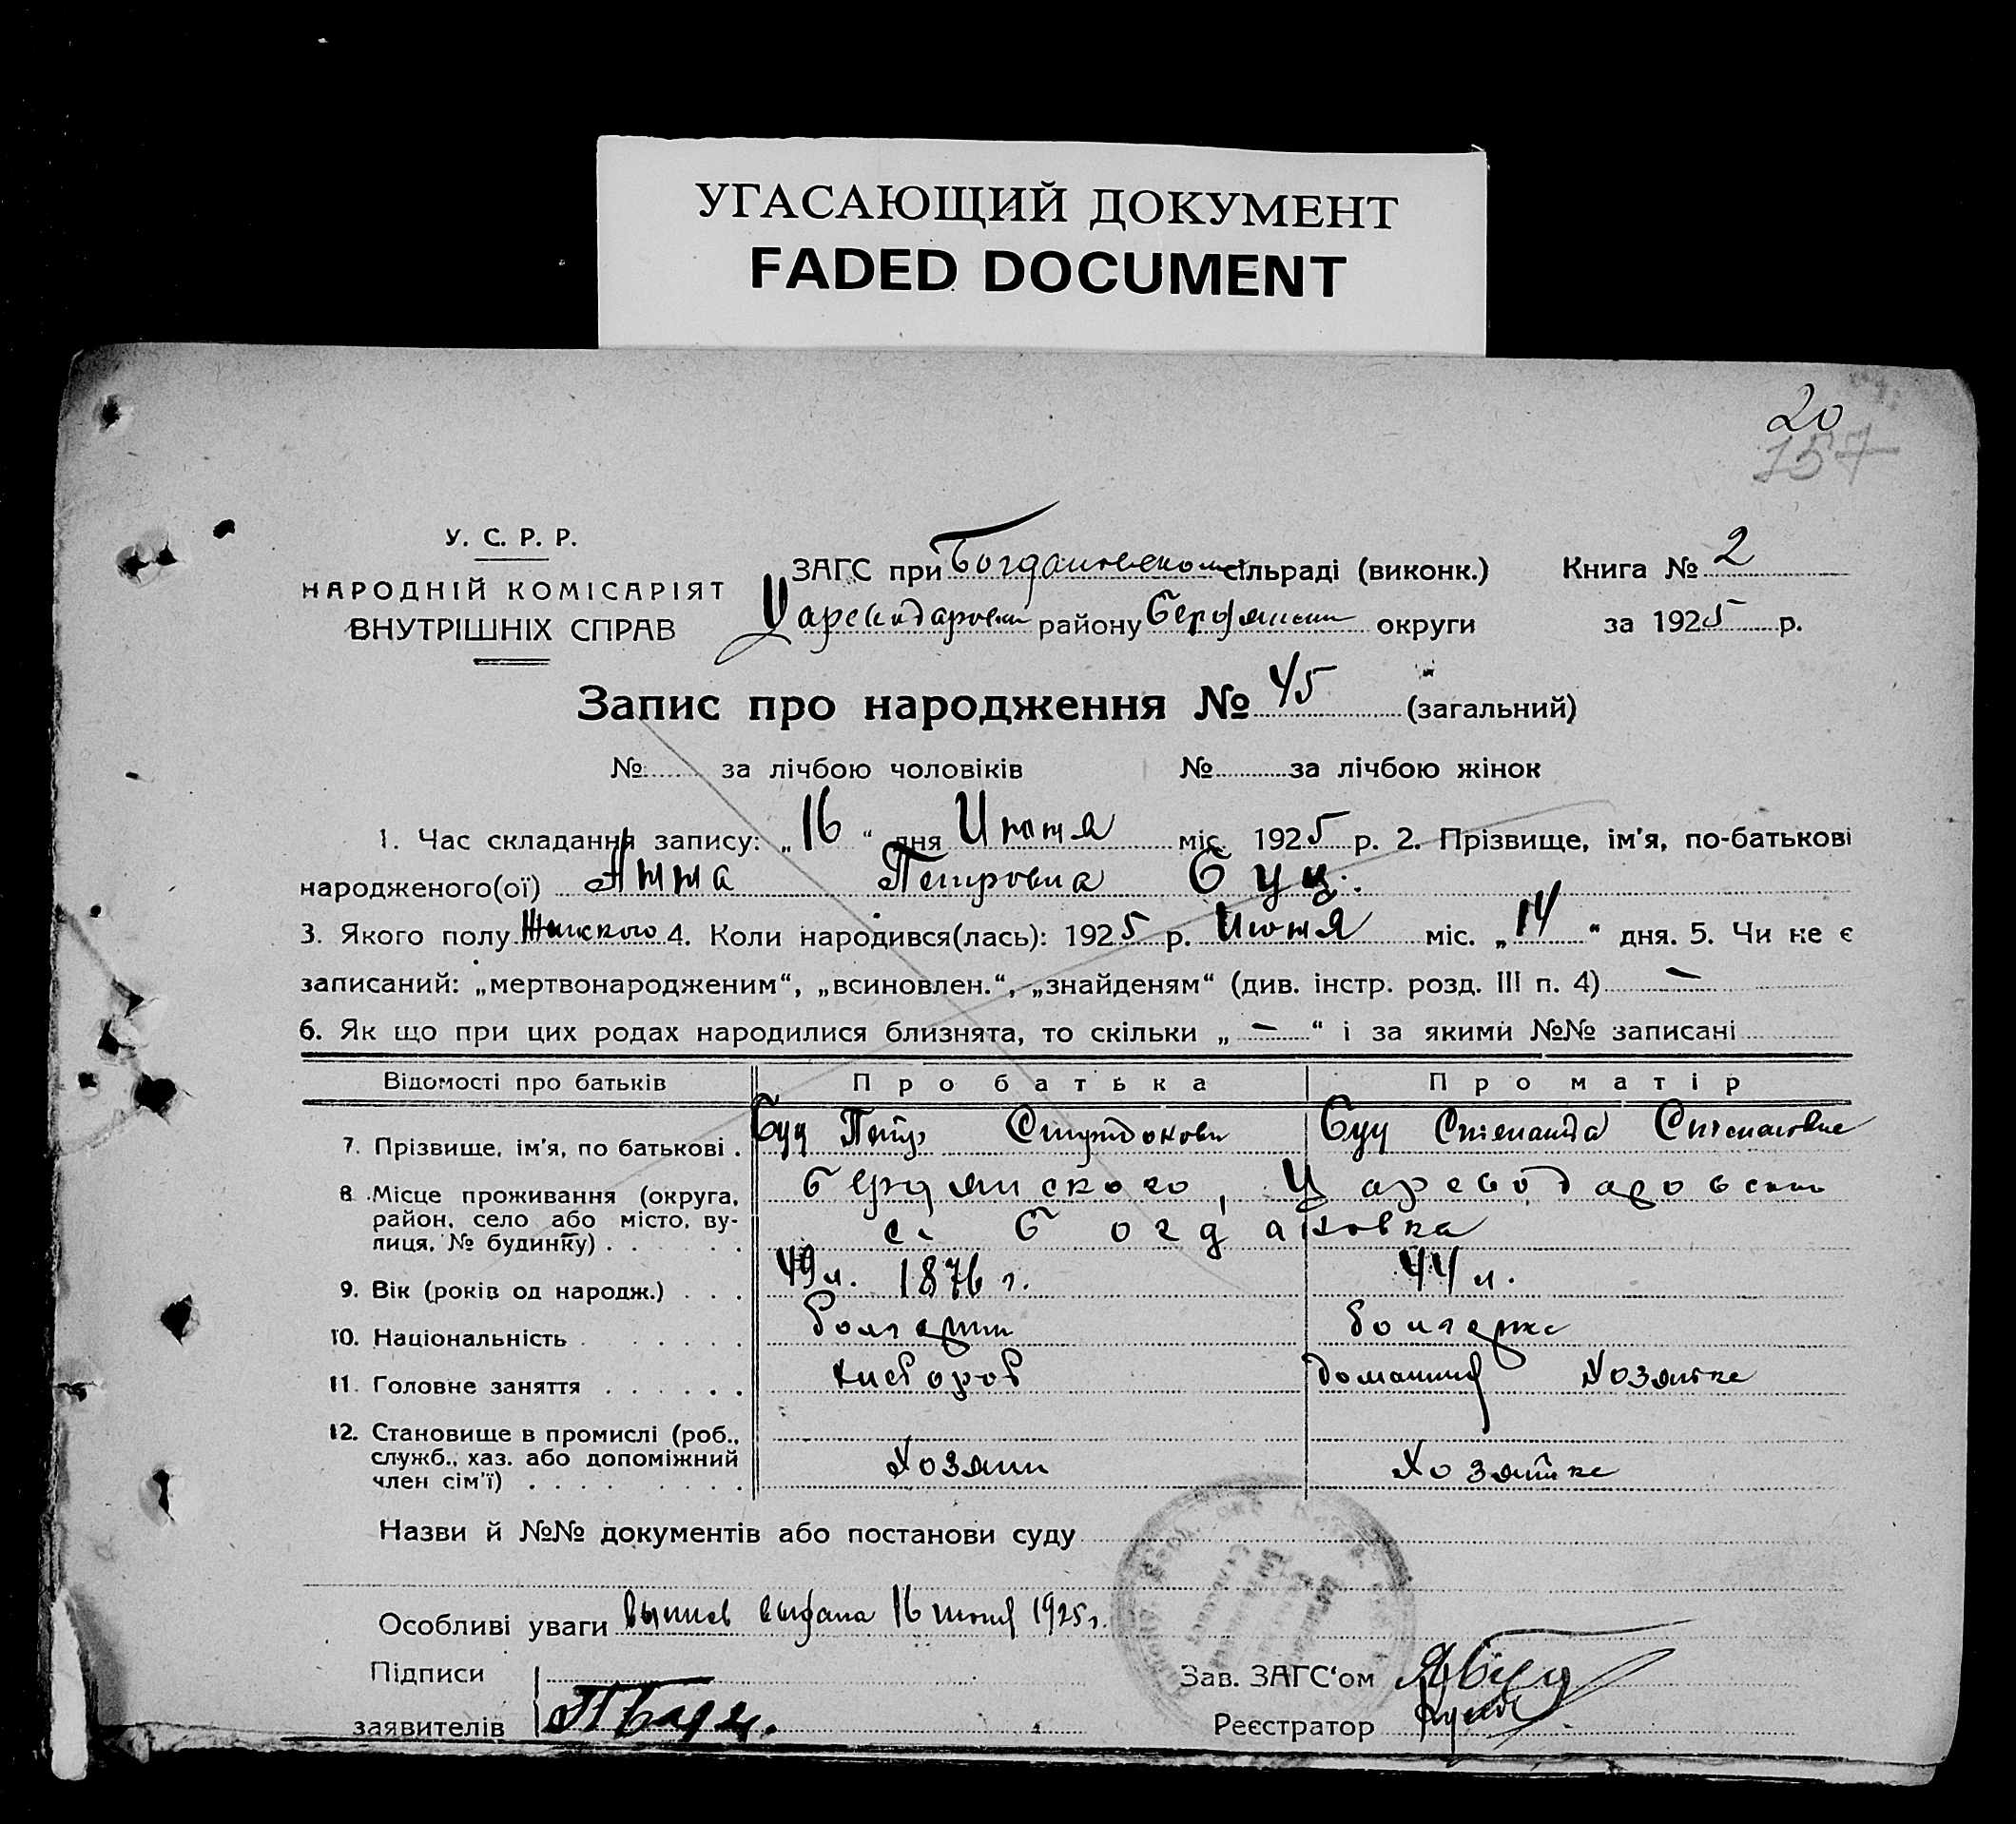 УГАСАЮЩИЙ ДОКУМЕНТ
FADED DOCUMENT
20
157
У. С. Р. Р.
НАРОДНІЙ КОМІСАРІЯТ
ВНУТРІШНІХ СПРАВ
ЗАГС при Богдановском сільраді (виконк.) Книга № 2
району округи за 1925 р.
Запис про народження № 45 (загальний)
№ за лічбою чоловіків № за лічбою жінок
1. Час складання запису: „16“ дня Июня міс. 1925 р. 2. Прізвище, ім'я, по-батькові
народженого(ої) Анна Петровна Буц.
3. Якого полу Женского 4. Коли народився(лась): 1925 р. Июня міс. „14“ дня. 5. Чи не є
записаний: „мертвонародженим“, „всиновлен.“, „знайденям“ (див. інстр. розд. III п. 4) —
6. Як що при цих родах народилися близнята, то скільки „—“ і за якими №№ записані
Відомості про батьків Про батька Про матір
7. Прізвище, ім'я, по батькові . Буц Петр Буц Степановна
8. Місце проживання (округа, Бердянского,
район, село або місто, ву- с. Богдановка
лиця, № будинку) . . . . . .
9. Вік (років од народж.) . . . 49 л. 1876 г. 44 л.
10. Національність . . . . . . болгарин болгарка
11. Головне заняття . . . . . . хлебороб домашняя хозяйка
12. Становище в промислі (роб.,
служб., хаз. або допоміжний хозяин хозяйка
член сім'ї) . . . . . . . . .
Назви й №№ документів або постанови суду
Особливі уваги выпись выдана 16 июня 1925 г.
Підписи Зав. ЗАГС'ом
заявителів Реєстратор